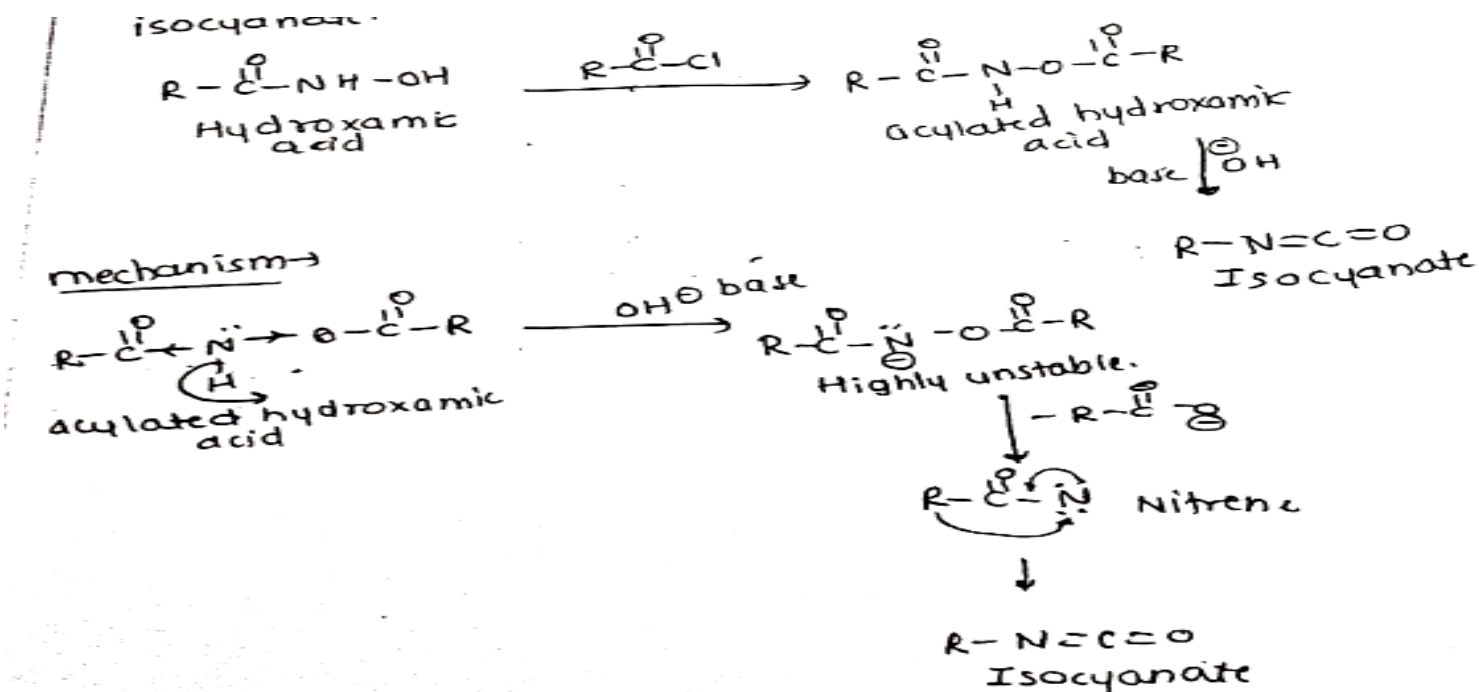 isocyanate.
R-C(=O)-NH-OH
Hydroxamic
acid
R-C(=O)-Cl
R-C(=O)-N(H)-O-C(=O)-R
acylated hydroxamic
acid
base ⊖OH
R-N=C=O
Isocyanate
mechanism→
R-C(=O)←N̈(H)→O-C(=O)-R
acylated hydroxamic
acid
OH⊖ base
R-C(=O)-N̈⊖-O-C(=O)-R
Highly unstable.
-R-C(=O)-O⊖
R-C(=O)-N̈: Nitrene
R-N=C=O
Isocyanate